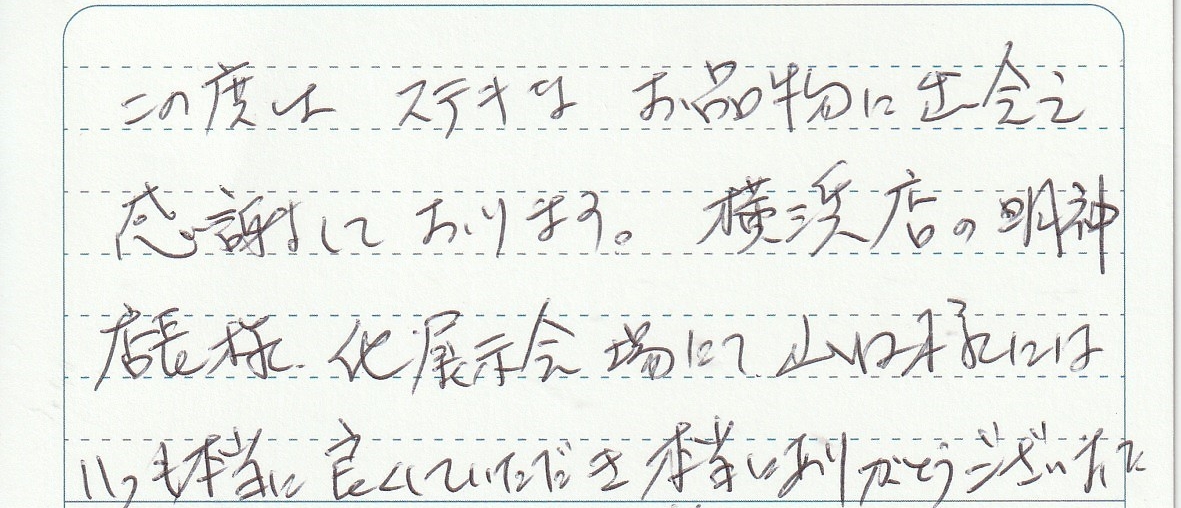 この度は ステキな お品物に出会え
感謝して おります。 横浜店の明神
店長様、他展示会場にて 山口様には
いつも本当に良くしていただき 本当にありがとうございました